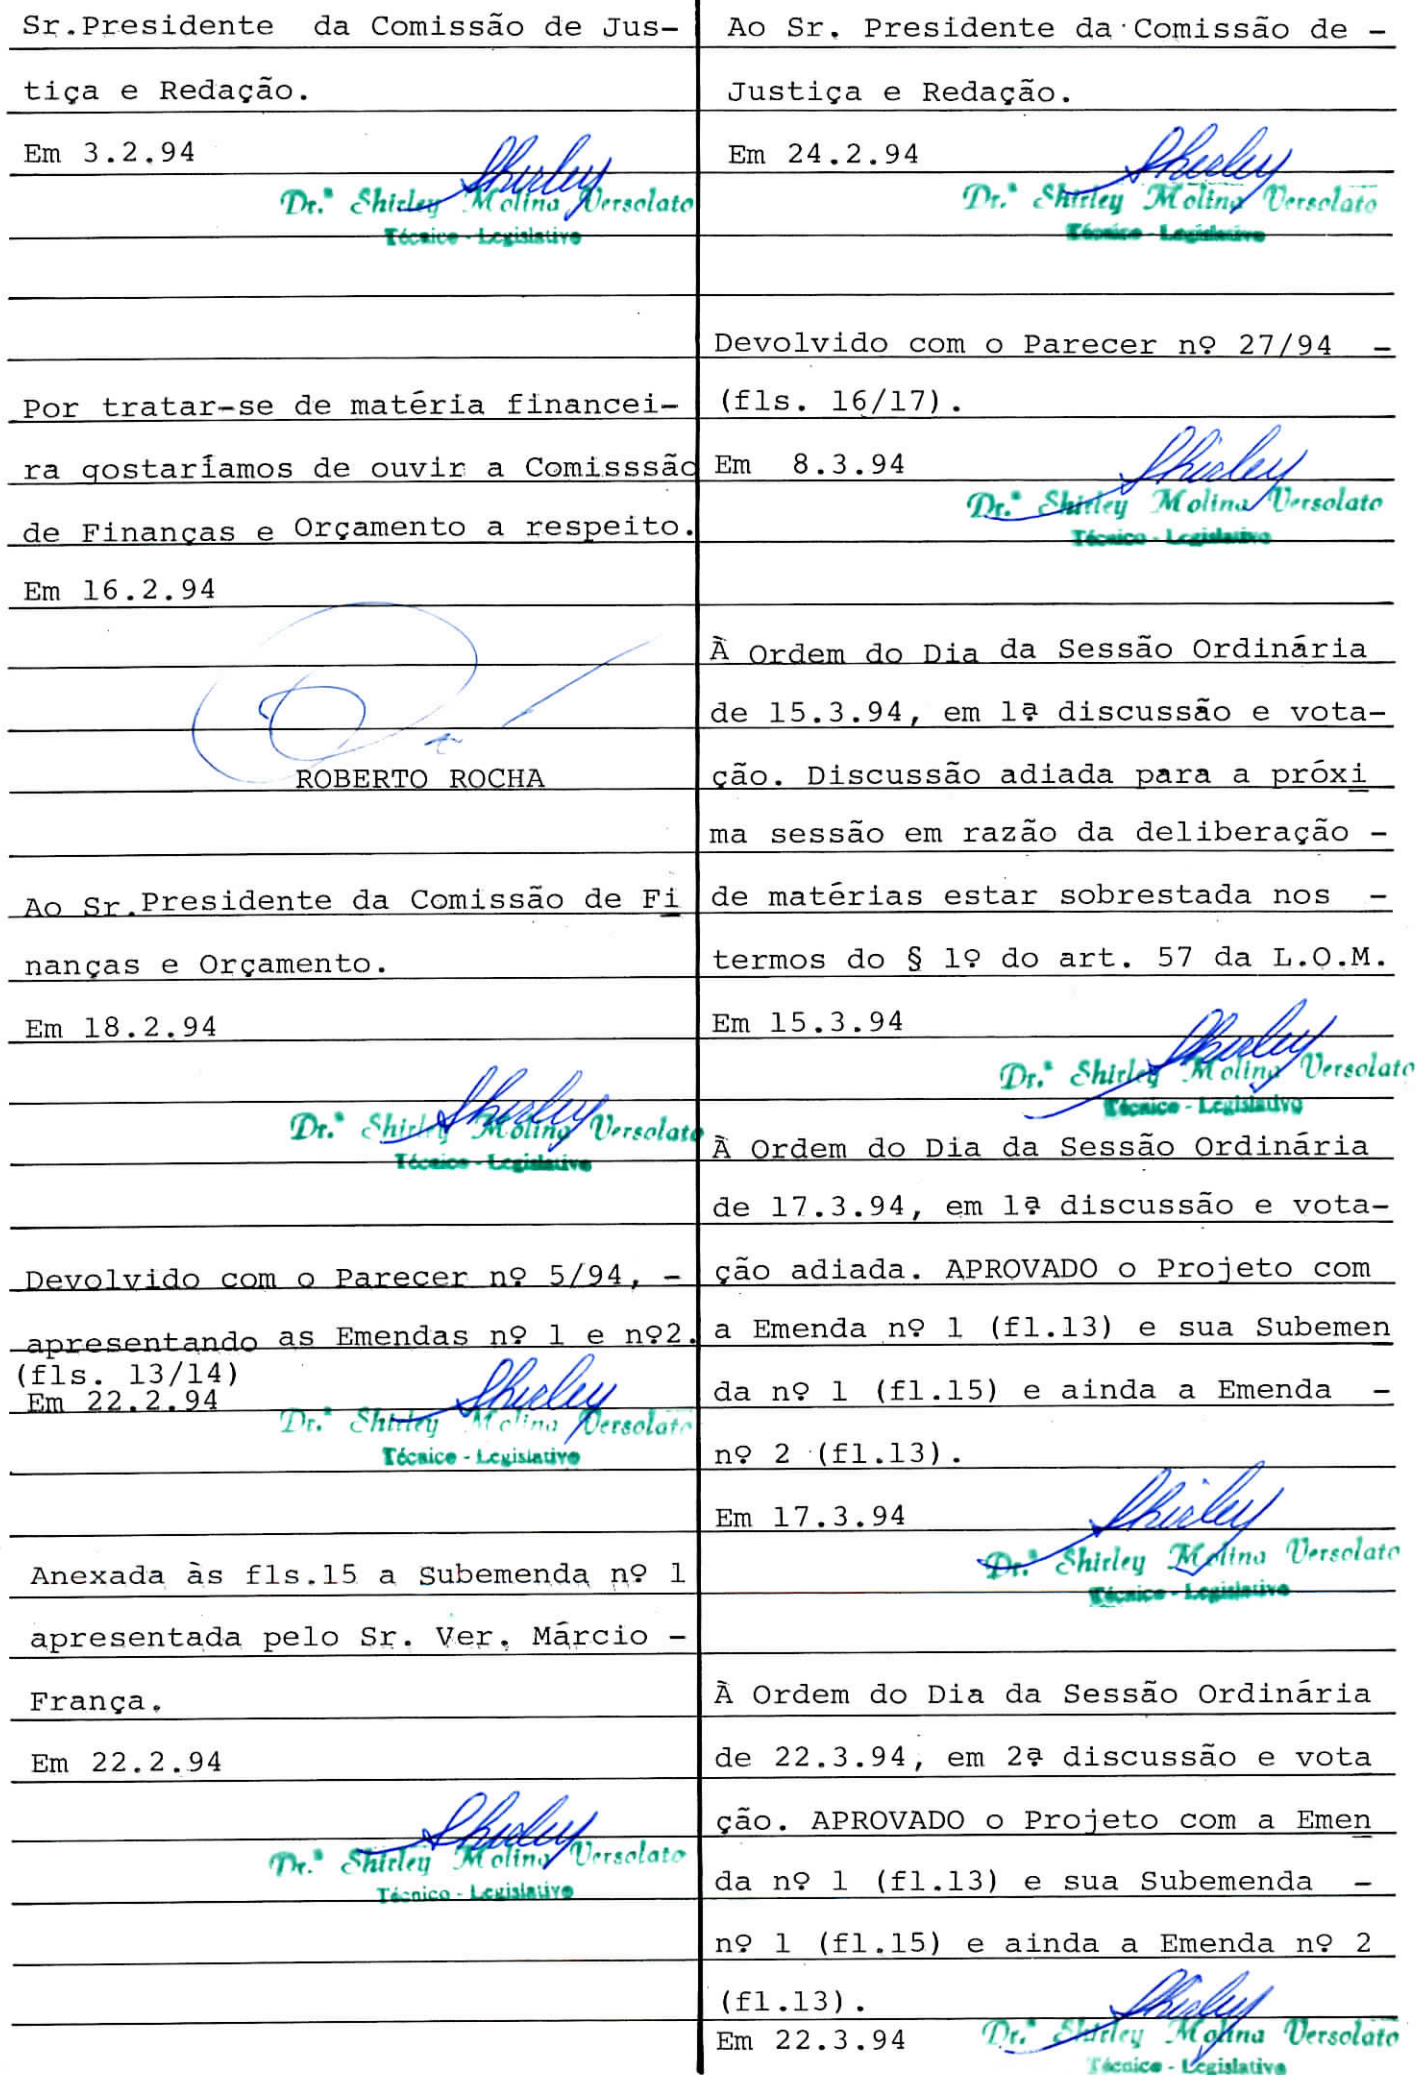 Sr.Presidente da Comissão de Jus-
tiça e Redação.
Em 3.2.94
Shirley
Dr.ª Shirley Molina Versolato
Técnico - Legislativo
Por tratar-se de matéria financei-
ra gostaríamos de ouvir a Comisssão
de Finanças e Orçamento a respeito.
Em 16.2.94
ROBERTO ROCHA
Ao Sr.Presidente da Comissão de Fi
nanças e Orçamento.
Em 18.2.94
Shirley
Dr.ª Shirley Molina Versolato
Técnico - Legislativo
Devolvido com o Parecer nº 5/94, -
apresentando as Emendas nº 1 e nº2.
(fls. 13/14)
Em 22.2.94
Shirley
Dr.ª Shirley Molina Versolato
Técnico - Legislativo
Anexada às fls.15 a Subemenda nº 1
apresentada pelo Sr. Ver. Márcio -
França.
Em 22.2.94
Shirley
Dr.ª Shirley Molina Versolato
Técnico - Legislativo
Ao Sr. Presidente da Comissão de -
Justiça e Redação.
Em 24.2.94
Shirley
Dr.ª Shirley Molina Versolato
Técnico - Legislativo
Devolvido com o Parecer nº 27/94 -
(fls. 16/17).
Em 8.3.94
Shirley
Dr.ª Shirley Molina Versolato
Técnico - Legislativo
À Ordem do Dia da Sessão Ordinária
de 15.3.94, em 1ª discussão e vota-
ção. Discussão adiada para a próxi
ma sessão em razão da deliberação -
de matérias estar sobrestada nos -
termos do § 1º do art. 57 da L.O.M.
Em 15.3.94
Shirley
Dr.ª Shirley Molina Versolato
Técnico - Legislativo
À Ordem do Dia da Sessão Ordinária
de 17.3.94, em 1ª discussão e vota-
ção adiada. APROVADO o Projeto com
a Emenda nº 1 (fl.13) e sua Subemen
da nº 1 (fl.15) e ainda a Emenda -
nº 2 (fl.13).
Em 17.3.94
Shirley
Dr.ª Shirley Molina Versolato
Técnico - Legislativo
À Ordem do Dia da Sessão Ordinária
de 22.3.94, em 2ª discussão e vota
ção. APROVADO o Projeto com a Emen
da nº 1 (fl.13) e sua Subemenda -
nº 1 (fl.15) e ainda a Emenda nº 2
(fl.13).
Em 22.3.94
Shirley
Dr.ª Shirley Molina Versolato
Técnico - Legislativo